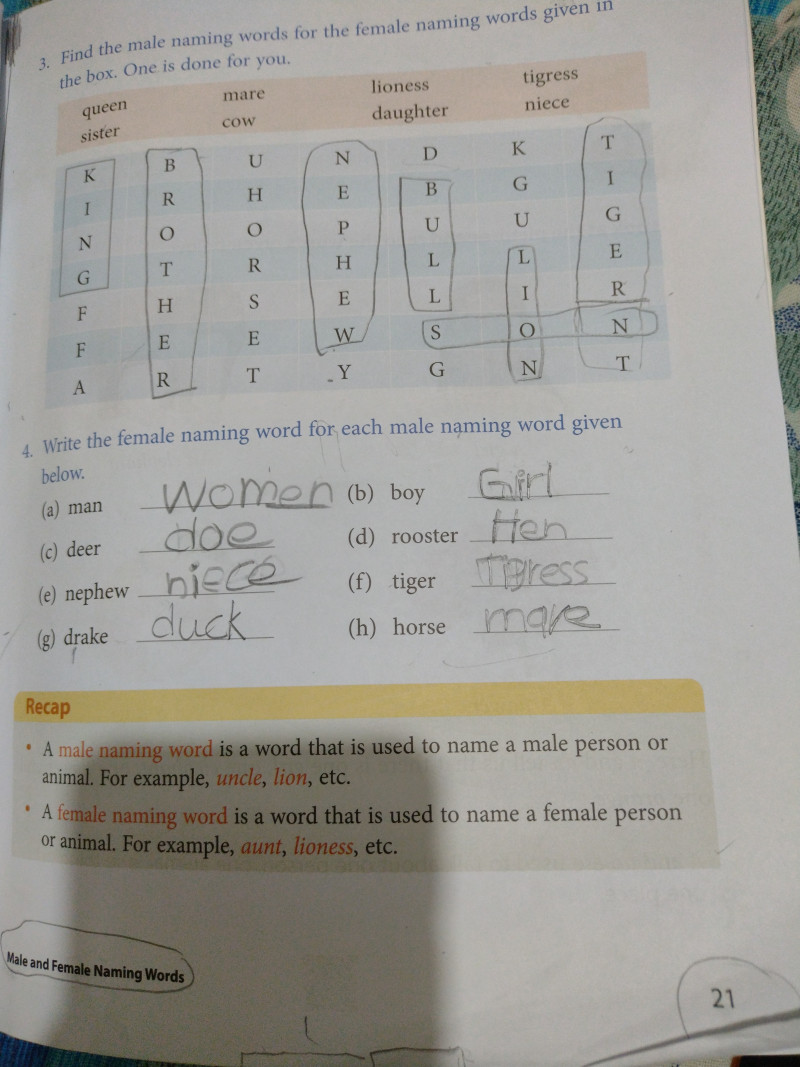 3. Find the male naming words for the female naming words given in
the box. One is done for you.
queen mare lioness tigress
sister cow daughter niece
K B U N D K T
I R H E B G I
N O O P U U G
G T R H L L E
F H S E L I R
F E E W S O N
A R T Y G N T
4. Write the female naming word for each male naming word given
below.
(a) man Women (b) boy Girl
(c) deer doe (d) rooster Hen
(e) nephew niece (f) tiger Tigress
(g) drake duck (h) horse mare
Recap
• A male naming word is a word that is used to name a male person or
animal. For example, uncle, lion, etc.
• A female naming word is a word that is used to name a female person
or animal. For example, aunt, lioness, etc.
Male and Female Naming Words
21